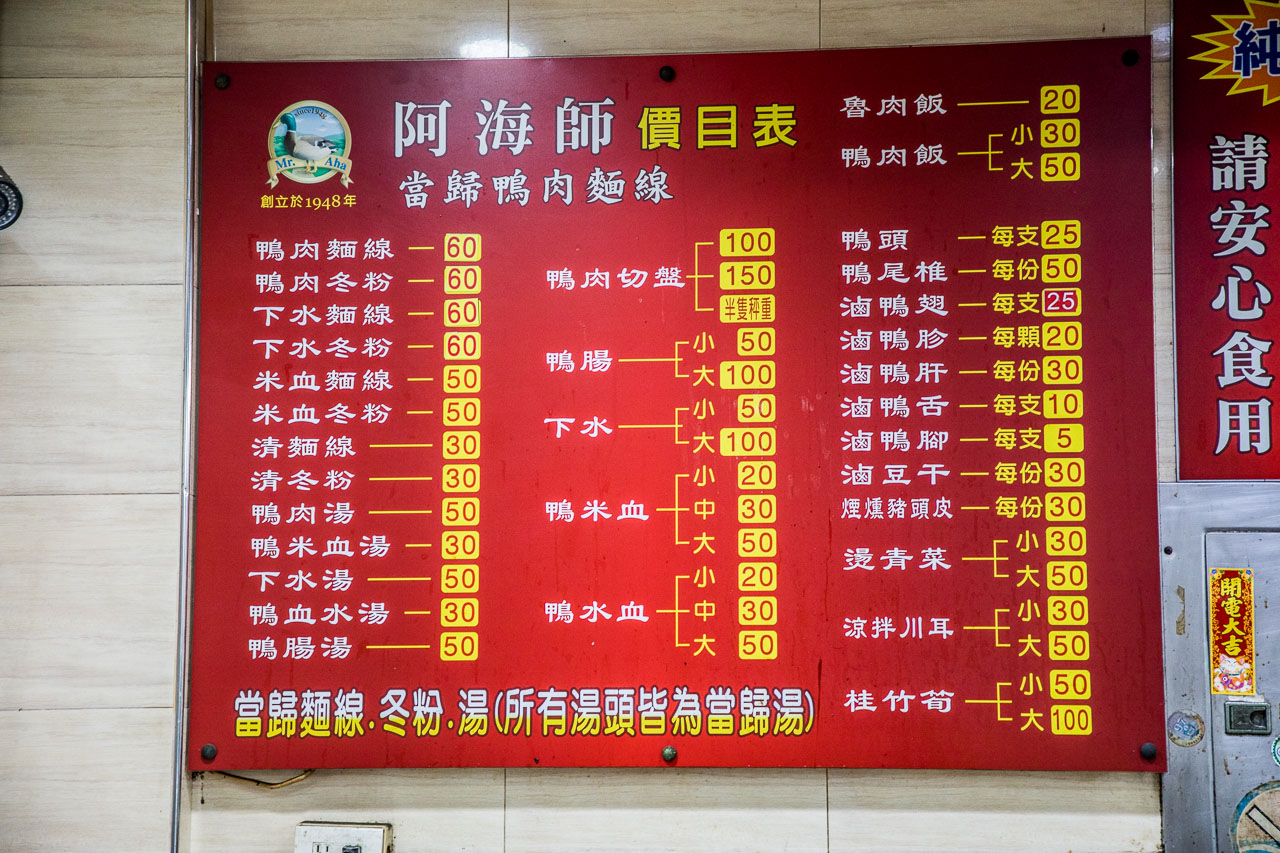 since1948
Mr. Aha
創立於1948年
阿海師 價目表
當歸鴨肉麵線
鴨肉麵線 60
鴨肉冬粉 60
下水麵線 60
下水冬粉 60
米血麵線 50
米血冬粉 50
清麵線 30
清冬粉 30
鴨肉湯 50
鴨米血湯 30
下水湯 50
鴨血水湯 30
鴨腸湯 50
鴨肉切盤 100
150
半隻秤重
鴨腸 小 50
大 100
下水 小 50
大 100
鴨米血 小 20
中 30
大 50
鴨水血 小 20
中 30
大 50
魯肉飯 20
鴨肉飯 小 30
大 50
鴨頭 每支 25
鴨尾椎 每份 50
滷鴨翅 每支 25
滷鴨胗 每顆 20
滷鴨肝 每份 30
滷鴨舌 每支 10
滷鴨腳 每支 5
滷豆干 每份 30
煙燻豬頭皮 每份 30
燙青菜 小 30
大 50
涼拌川耳 小 30
大 50
桂竹筍 小 50
大 100
當歸麵線.冬粉.湯(所有湯頭皆為當歸湯)
純
請安心食用
開電大吉